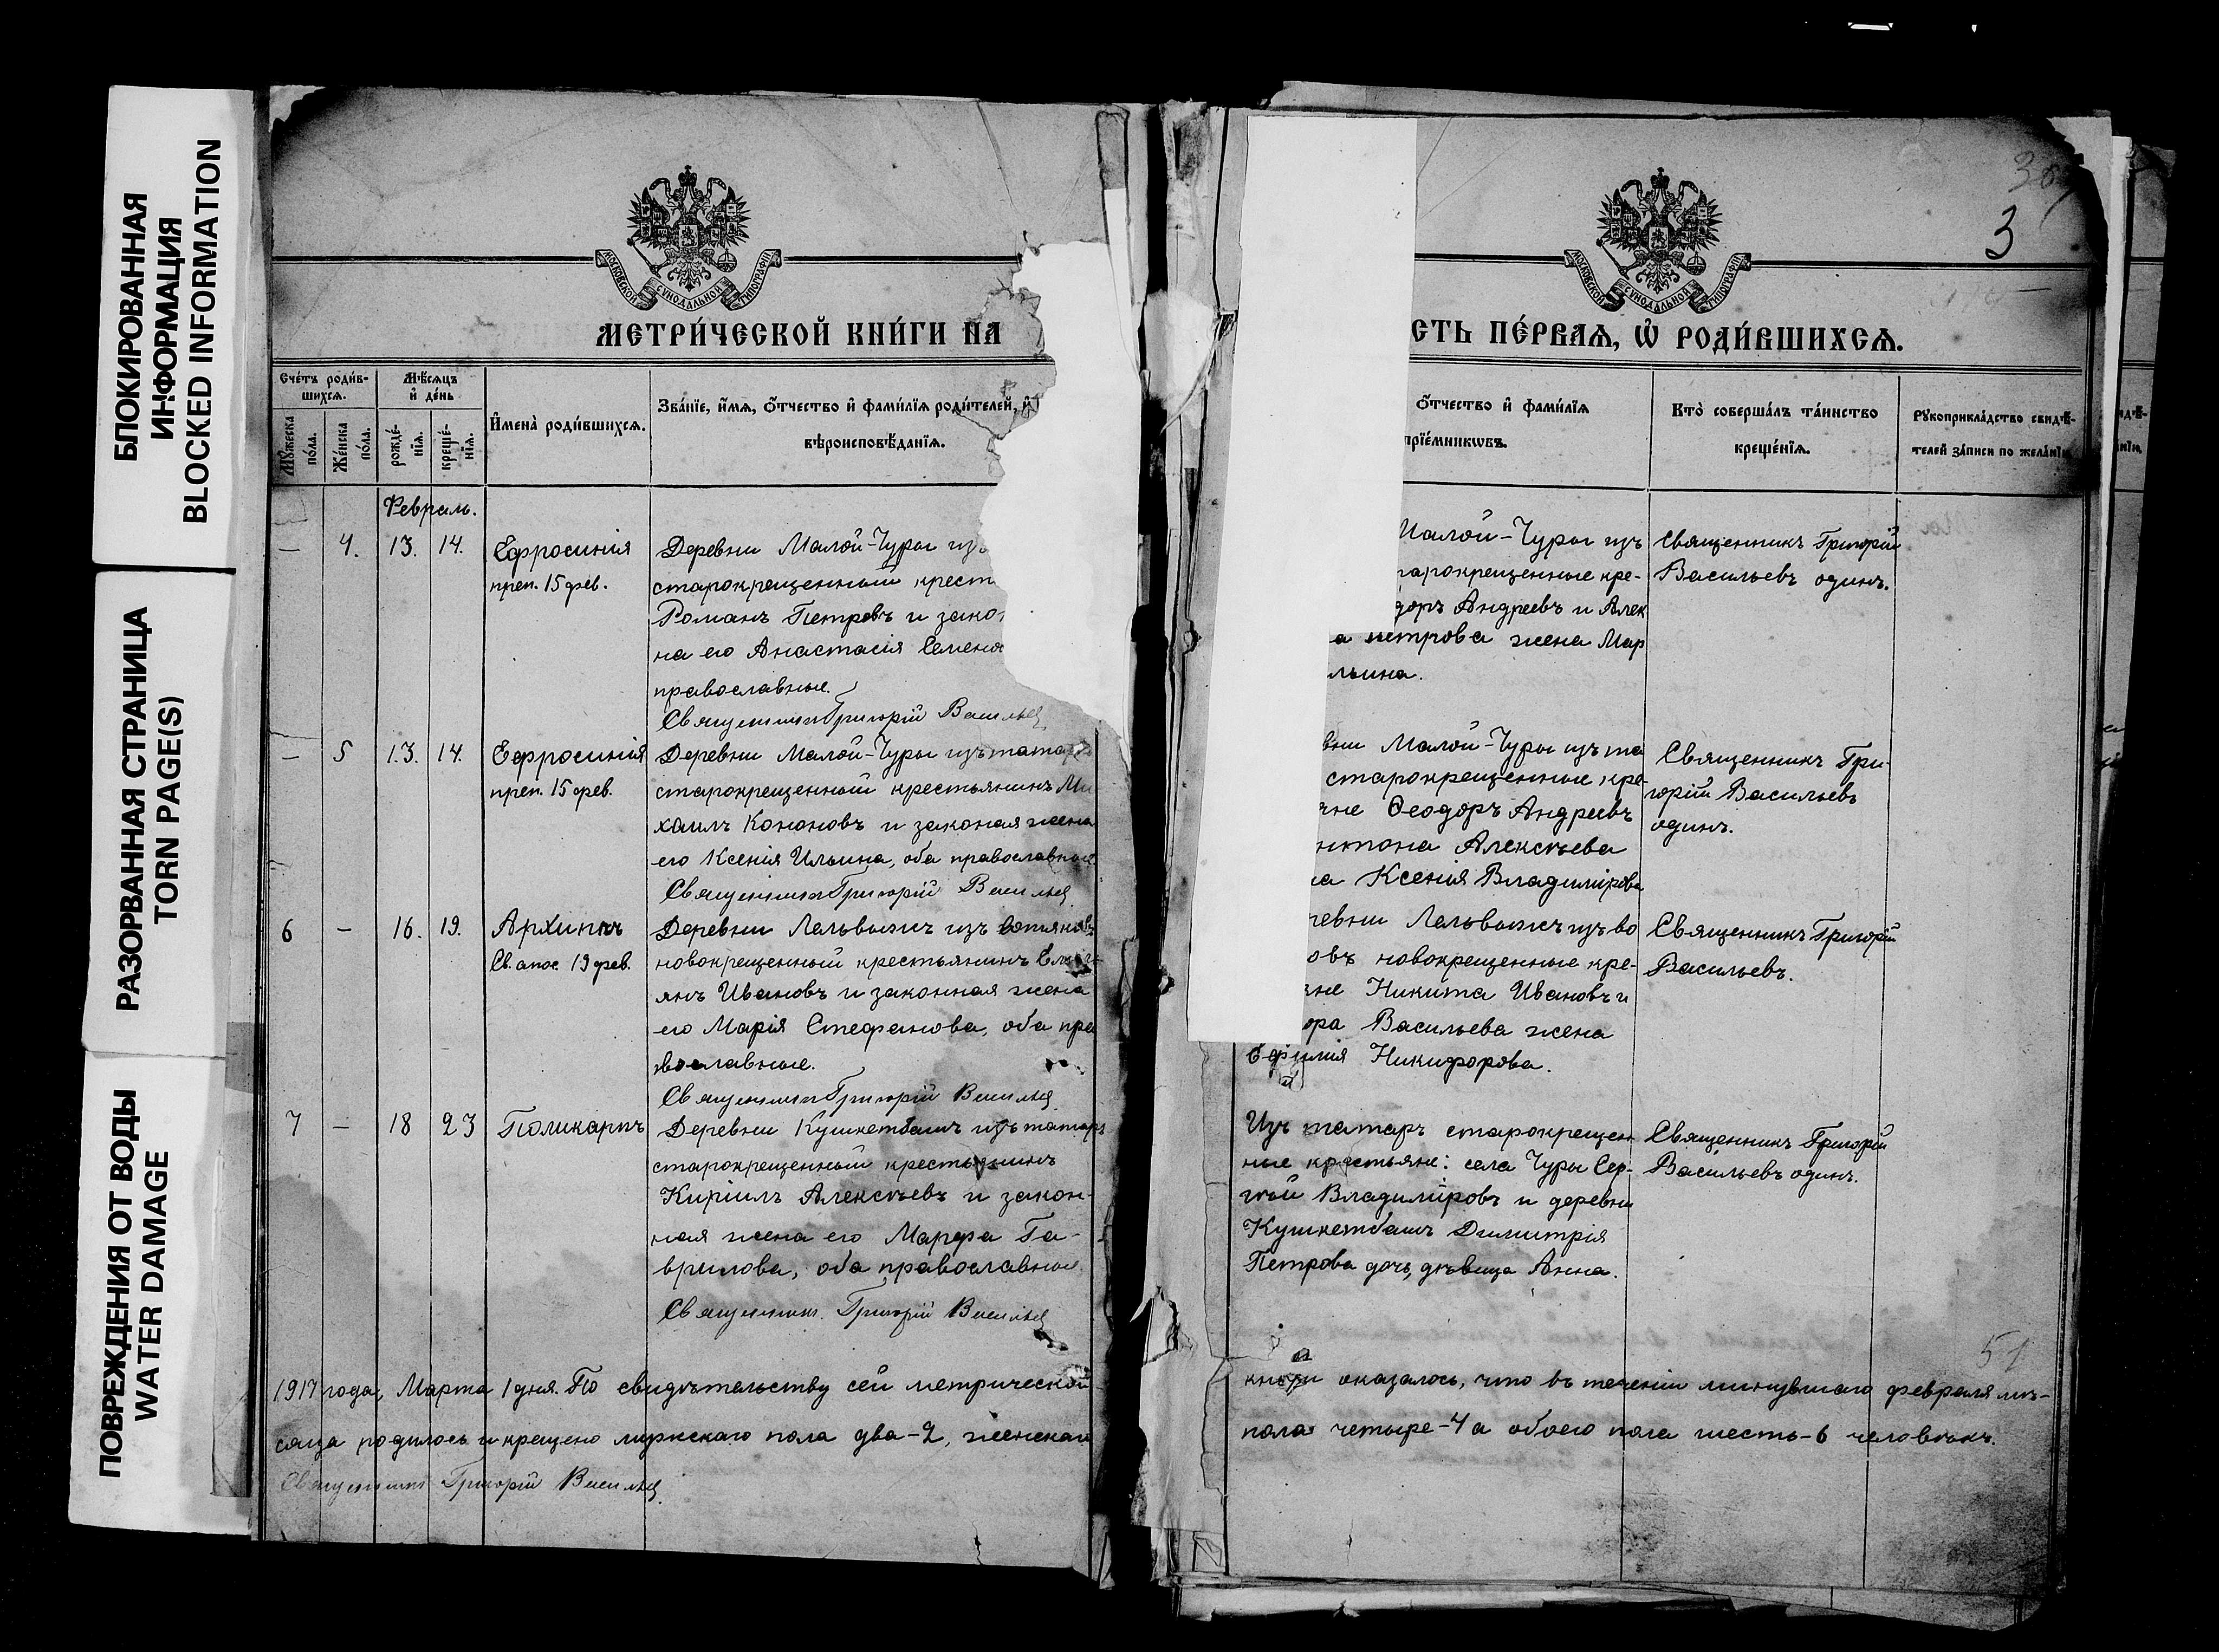 БЛОКИРОВАННАЯ
ИНФОРМАЦИЯ
BLOCKED INFORMATION
РАЗОРВАННАЯ СТРАНИЦА
TORN PAGE(S)
ПОВРЕЖДЕНИЯ ОТ ВОДЫ
WATER DAMAGE
МОСКОВСКОЙ СѴНОДАЛЬНОЙ ТИПОГРАФІИ
МЕТРИ́ЧЕСКОЙ КНИ́ГИ НА
Сче́тъ роди́в-
шихсѧ.
Мѣ́сѧцъ
и҆ де́нь
Мꙋ́жеска
по́ла.
Же́нска
по́ла.
рожде́-
нїѧ.
креще́-
нїѧ.
И҆мена̀ роди́вшихсѧ.
Зва́нїе, и҆́мѧ, ѻ҆́тчество и҆ фами́лїѧ роди́телей, и҆
вѣроисповѣ́данїѧ.
Февраль.
— 4. 13. 14. Ефросинія
преп. 15 фев.
Деревни Малой-Чуры изъ
старокрещенный крест
Романъ Петровъ и зако
на его Анастасія Семено
православные.
Священникъ Григорій Васильев
— 5 13. 14. Ефросинія
преп. 15 фев.
Деревни Малой-Чуры изъ татаръ
старокрещенный крестьянинъ Ми
хаилъ Кононовъ и законая жена
его Ксенія Ильина, оба православные
Священникъ Григорій Васильев
6 — 16. 19. Архиппъ
Св. апос. 19 фев.
Деревни Лельвыжъ изъ вотяковъ
новокрещенный крестьянинъ
янъ Ивановъ и законная жена
его Марія Стефанова, оба пра
вославные.
Священникъ Григорій Васильев
7 — 18 23 Поликарпъ
Деревни Кушкетбашъ изъ татаръ
старокрещенный крестьянинъ
Кирилъ Алексѣевъ и закон-
ная жена его Марфа Га-
врилова, оба православные
Священникъ Григорій Васильев
1917 года, Марта 1 дня. По свидѣтельству сей метрической
сяца родилось и крещено мужскаго пола два-2, женскаго
Священникъ Григорій Васильев
3
МОСКОВСКОЙ СѴНОДАЛЬНОЙ ТИПОГРАФІИ
СТЬ ПЕ́РВАѦ, Ѽ РОДИ́ВШИХСѦ.
ѻ҆́тчество и҆ фами́лїѧ
прїе́мникѡвъ.
Кто̀ соверша́лъ та́инство
креще́нїѧ.
Рꙋкоприкла́дство свидѣ́-
телей за́писи по жела́нїю
Малой-Чуры изъ
тарокрещенные кре-
доръ Андреевъ и Алек
а петрова жена Мар
льина.
Священникъ Григорій
Васильевъ одинъ.
вни Малой-Чуры изъ та
старокрещенные кре
яне Ѳеодоръ Андреевъ
нтона Алексѣева
на Ксенія Владимірова
Священникъ Гри-
горій Васильевъ
одинъ.
ревни Лельвыжъ изъ во
овъ новокрещенные кре-
яне Никита Ивановъ и
ора Васильева жена
Никифорова.
Священникъ Григорій
Васильевъ.
Изъ татаръ старокрещен
ные крестьяне: села Чуры Сер-
гѣй Владиміровъ и деревни
Кушкетбашъ Димитрія
Петрова дочь, дѣвица Анна.
Священникъ Григорій
Васильевъ одинъ.
51
книги оказалось, что въ теченіи минувшаго февраля мѣ-
пола четыре-4 а обоего пола шесть-6 человѣкъ.